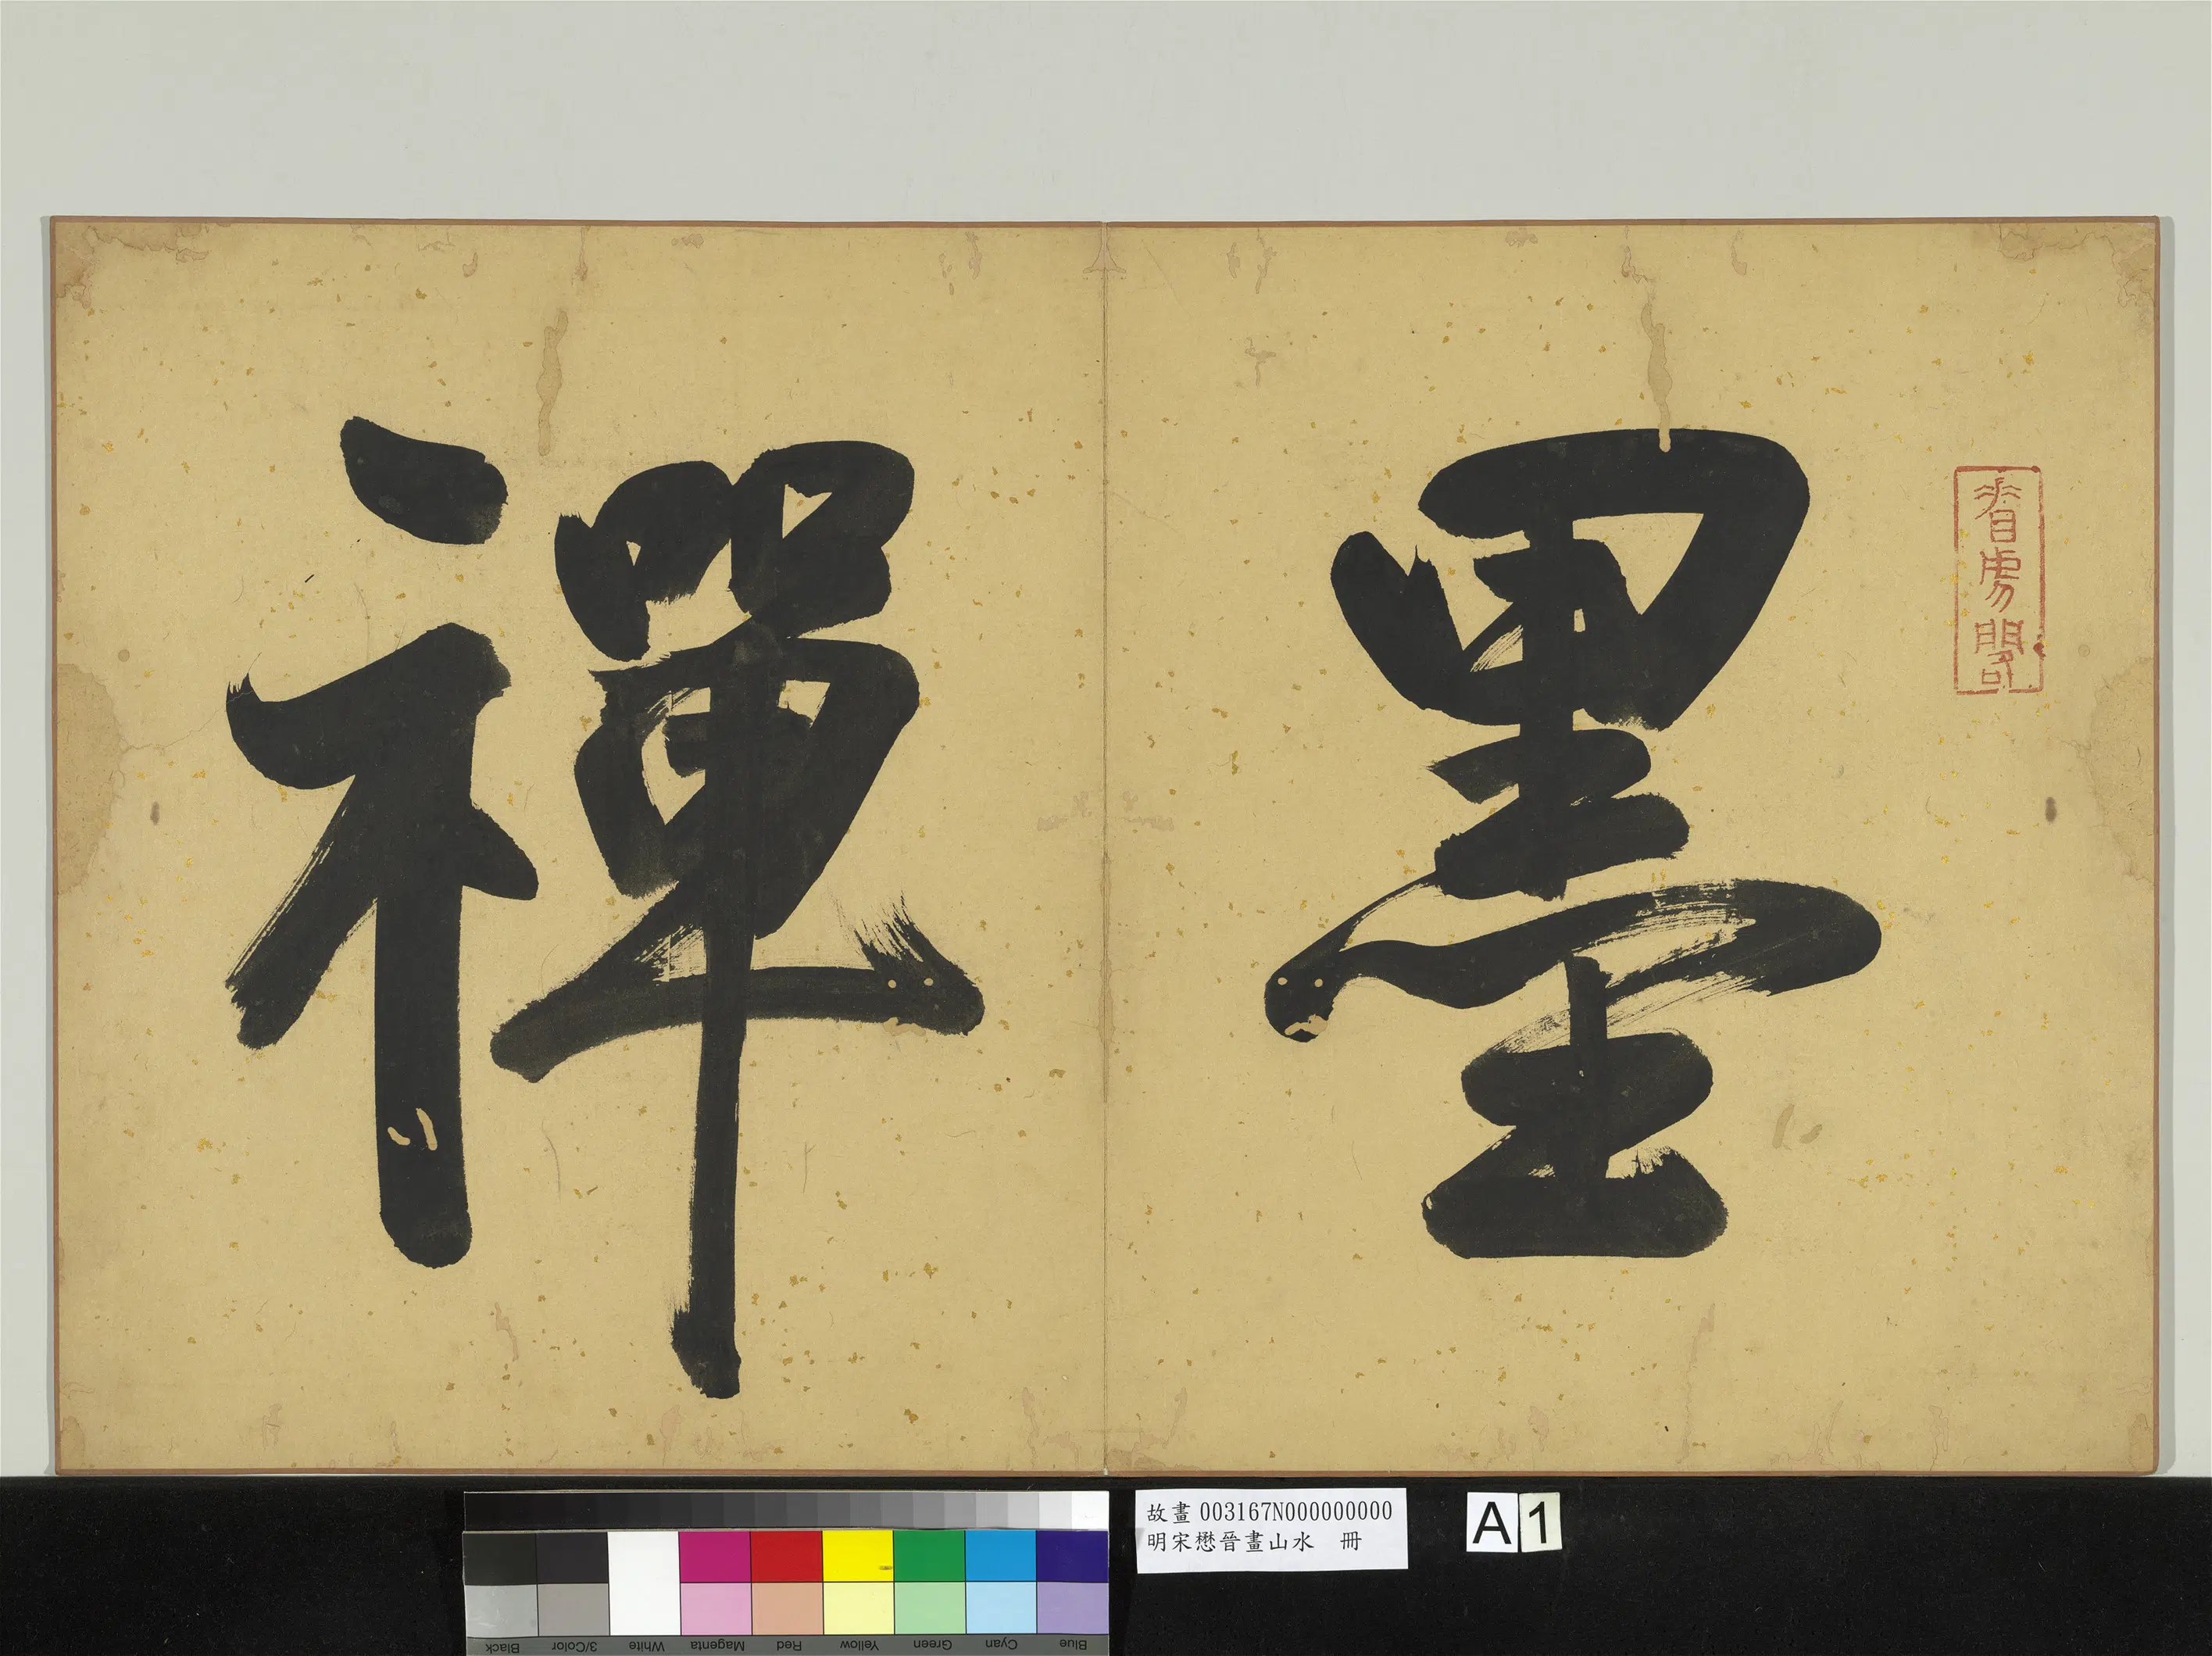 墨
禪
故畫 003167N000000000
明宋懋晉畫山水 冊
A1
Black
3/Color
White
Magenta
Red
Yellow
Green
Cyan
Blue